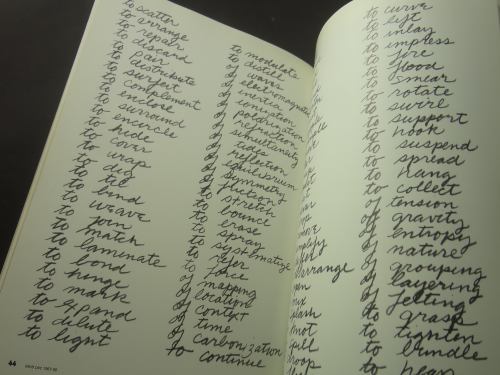 to scatter
to arrange
to repair
to discard
to pair
to distribute
to surfeit
to complement
to enclose
to surround
to encircle
to hide
to cover
to wrap
to dig
to tie
to bind
to weave
to join
to match
to laminate
to bond
to hinge
to mark
to expand
to dilute
to light
44
to modulate
to distill
of waves
of electromagnetic
of inertia
of ionization
of polarization
of refraction
of simultaneity
of tides
of reflection
of equilibrium
of symmetry
of friction
to stretch
to bounce
to erase
to spray
to systematize
to refer
to force
of mapping
of location
of context
of time
of carbonization
to continue
arrange
to curve
to lift
to inlay
to impress
to fire
to flood
to smear
to rotate
to swirl
to support
to hook
to suspend
to spread
to hang
to collect
of tension
of gravity
of entropy
of nature
of grouping
of layering
of felting
to grasp
to tighten
to bundle
to heap